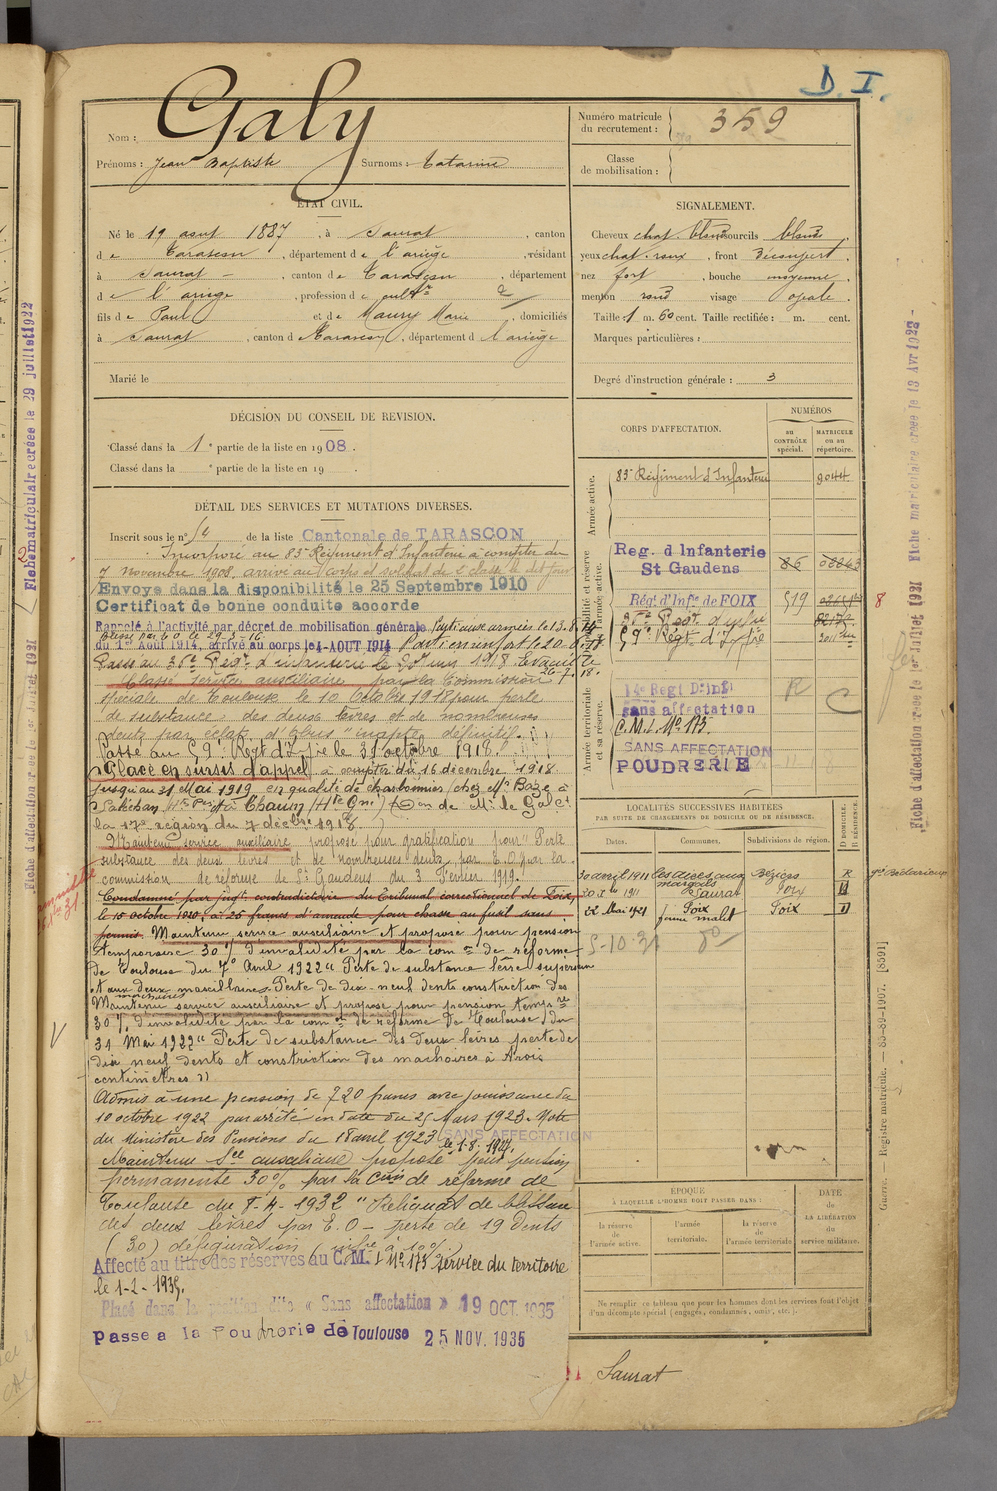 D. I.
Nom : Galy
Prénoms : Jean Baptiste Surnoms : Catarine
Numéro matricule du recrutement : 359
Classe de mobilisation :
ÉTAT CIVIL.
Né le 19 aout 1887, à Saurat, canton
de Tarascon, département de l'ariège, résidant
à Saurat, canton de Tarascon, département
de l'ariege, profession de cultr
fils de Paul et de Maury Marie, domiciliés
à Saurat, canton de Tarascon, département d l'ariège
Marié le
SIGNALEMENT.
Cheveux chat. blond sourcils blonds
yeux chat. roux, front découvert.
nez fort, bouche moyenne,
menton rond visage ovale.
Taille : 1 m. 60 cent. Taille rectifiée : m. cent.
Marques particulières :
Degré d'instruction générale : 3
DÉCISION DU CONSEIL DE REVISION.
Classé dans la 1e partie de la liste en 1908.
Classé dans la e partie de la liste en 19 .
DÉTAIL DES SERVICES ET MUTATIONS DIVERSES.
Inscrit sous le n° 54 de la liste Cantonale de TARASCON
Incorporé au 83e Régiment d'Infanterie à compter du
7 novembre 1908, arrivé au corps et soldat de 2e classe le dit jour
Envoyé dans la disponibilité le 25 Septembre 1910
Certificat de bonne conduite accordé
Rappelé à l'activité par décret de mobilisation générale Parti aux armées le 13-8-14
blessé par E.O le 29-3-16.
du 1er Aout 1914, arrivé au corps le 4 AOUT 1914 Parti en renfort le 20-
Passé au 36e Regt d'infanterie le 20 juin 1918. Evacué le 26-7-18.
Classé service auxiliaire par la Commission
spéciale de Toulouse le 10 Octobre 1918 pour perte
de substance des deux lèvres et de nombreuses
dents par éclats d'obus "inapte définitif"
Passé au 59e Régt d'Ifrie le 31 octobre 1918.
Placé en sursis d'appel à compter du 16 décembre 1918
jusqu'au 31 Mai 1919 en qualité de charbonnier chez Mr Baze à
la 17e région du 7 décbre 1918.)
Maintenu service auxiliaire proposé pour gratification pour "Perte
substance des deux lèvres et de nombreuses dents par E,O par la
commission de réforme de St Gaudens du 3 Février 1919.
Condamné par jugt contradictoire du Tribunal correctionnel de Foix,
le 15 octobre 1920, à 25 francs d'amende pour chasse au fusil sans
permis. Maintenu service auxiliaire et proposé pour pension
temporaire 30 % d'invalidité par la comon de réforme
de Toulouse du 7 Avril 1922 "Perte de substance lèvre supérieure
et aux deux maxillaires. Perte de dix-neuf dents constriction des
machoires
Maintenu service auxiliaire et proposé pour pension tempre
30 %, d'invalidité par la comon de réforme de Toulouse du
31 Mai 1922 "Perte de substance des deux lèvres perte de
dix neuf dents et constriction des machoires à trois
centimètres"
Admis à une pension de 720 francs avec jouissance du
10 octobre 1922 par arrêté en date du 25 Mars 1923. Note
du Ministère des Pensions du 18 avril 1923 SANS AFFECTATION
le 1-8-1927.
Maintenu Sce auxiliaire proposé pour pension
permanente 30 % par la Cion de réforme de
Toulouse du 7-4-1932 "Reliquat de blessure
des deux lèvres par E.O - perte de 19 dents
(30) défiguration
Affecté au titre des réserves au C.M.I N° 173 Service du territoire
le 1-2-1935.
Placé dans la position dite « Sans affectation » 19 OCT. 1935
Passé à la Poudrerie de Toulouse 25 NOV. 1935
CORPS D'AFFECTATION.
NUMÉROS
au CONTRÔLE spécial.
MATRICULE ou au répertoire.
Armée active.
83e Régiment d'Infanterie 9044
Disponibilité et réserve de l'armée active.
Reg. d Infanterie
St Gaudens 86
Régt d'Infie de FOIX 519
59e Régt d'Ifrie
Armée territoriale et sa réserve.
14e Regt D'inf R C
sans affectation
C.M.I. No 173.
SANS AFFECTATION
POUDRERIE
LOCALITÉS SUCCESSIVES HABITÉES
PAR SUITE DE CHANGEMENTS DE DOMICILE OU DE RÉSIDENCE.
Dates. Communes. Subdivisions de région. D. DOMICILE. R. RÉSIDENCE.
30 avril 1911 Les aires aux Béziers R
1911 Saurat Foix D
22 Mai 1921 Foix Foix D
5-10-31
ÉPOQUE
À LAQUELLE L'HOMME DOIT PASSER DANS :
la réserve de l'armée active.
l'armée territoriale.
la réserve de l'armée territoriale.
DATE DE LA LIBÉRATION du service militaire.
Ne remplir ce tableau que pour les hommes dont les services font l'objet
d'un décompte spécial (engagés, condamnés, omis, etc.).
Saurat
8
Guerre. — Registre matricule. — 85-89-1907. [8591]
Fiche matriculaire créée le 29 juillet 1922
Fiche d'affectation créée le 1er Juillet 1921
Fiche matriculaire créée le 13 Avr 1923
Fiche d'affectation créée le 1er Juillet 1921